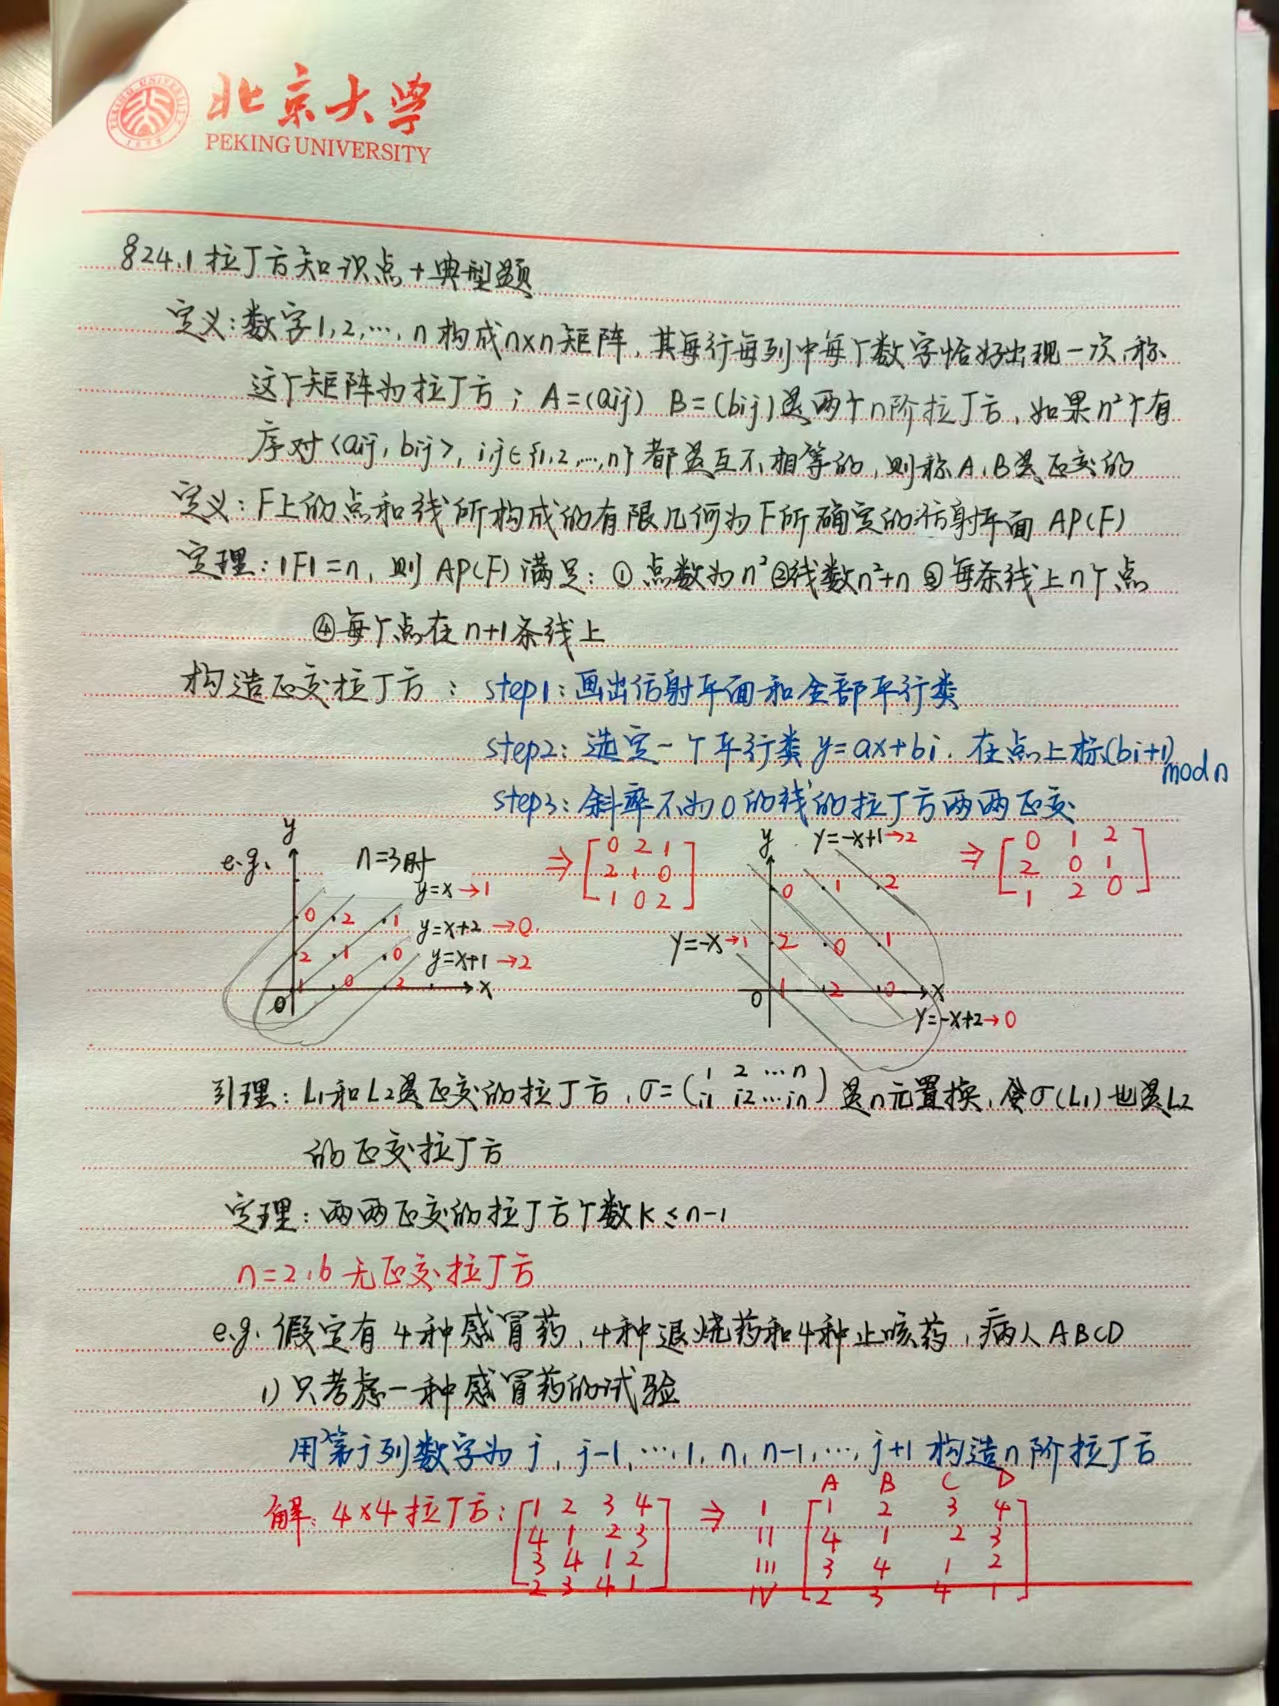 北京大学
PEKING UNIVERSITY
§24.1 拉丁方知识点+典型题
定义：数字1,2,…,n构成n×n矩阵，其每行每列中每个数字恰好出现一次，称
这个矩阵为拉丁方；A=(aij) B=(bij)是两个n阶拉丁方，如果n²个有
序对<aij, bij>, i,j∈{1,2,…,n}都是互不相等的，则称A、B是正交的
定义：F上的点和线所构成的有限几何为F所确定的仿射平面 AP(F)
定理：|F|=n，则 AP(F) 满足：①点数为n² ②线数n²+n ③每条线上n个点
④每个点在n+1条线上
构造正交拉丁方：step1：画出仿射平面和全部平行类
step2：选定一个平行类 y=ax+bi，在点上标(bi+1) mod n
step3：斜率不为0的线的拉丁方两两正交
e.g. n=3时
y
y=x→1
y=x+2→0
y=x+1→2
0 2 1
2 1 0
1 0 2
0 x
⇒ [0 2 1
2 1 0
1 0 2]
y
y=-x+1→2
y=-x→1
y=-x+2→0
0 1 2
2 0 1
1 2 0
0 x
⇒ [0 1 2
2 0 1
1 2 0]
引理：L1和L2是正交的拉丁方，σ=(1 2 …n
i1 i2…in)是n元置换，令σ(L1)也是L2
的正交拉丁方
定理：两两正交的拉丁方个数k≤n-1
n=2,6 无正交拉丁方
e.g. 假定有4种感冒药，4种退烧药和4种止咳药，病人ABCD
1) 只考虑一种感冒药的试验
用第j列数字为 j, j-1, …, 1, n, n-1, …, j+1 构造n阶拉丁方
A B C D
解：4×4拉丁方：[1 2 3 4 ⇒ I [1 2 3 4
4 1 2 3 II 4 1 2 3
3 4 1 2 III 3 4 1 2
2 3 4 1] IV 2 3 4 1]